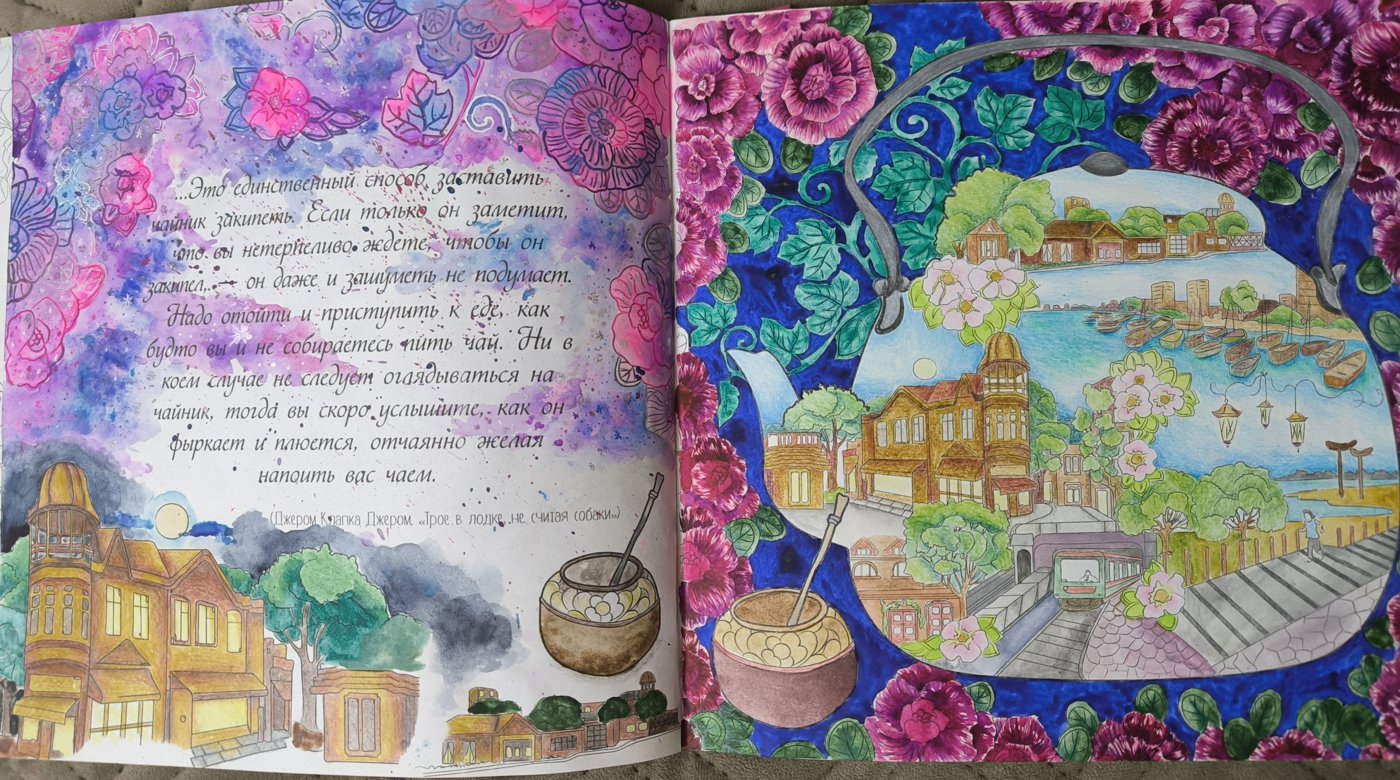 ...Это единственный способ заставить
чайник закипеть. Если только он заметит,
что вы нетерпеливо ждете, чтобы он
закипел, — он даже и зашуметь не подумает.
Надо отойти и приступить к еде, как
будто вы и не собираетесь пить чай. Ни в
коем случае не следует оглядываться на
чайник, тогда вы скоро услышите, как он
фыркает и плюется, отчаянно желая
напоить вас чаем.
(Джером Клапка Джером. «Трое в лодке, не считая собаки»)